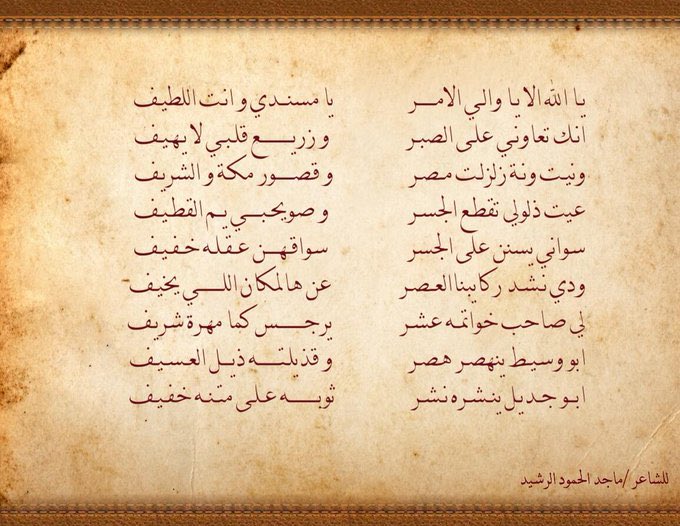 يا الله الا يا والي الامر يا مسندي و انت اللطيف
انك تعاوني على الصبر و زريع قلبي لا يهيف
ونيت ونة زلزلت مصر و قصور مكة و الشريف
عيت ذلولي تقطع الجسر و صويحبي يم القطيف
سواني يسنن على الجسر سواقهن عقله خفيف
ودي نشد ركايبنا العصر عن هالمكان اللي يخيف
لي صاحب خواتمه عشر يرجس كما مهرة شريف
ابو وسيط ينهصر هصر و قذيلته ذيل العسيف
ابو جديل ينشره نشر ثوبه على متنه خفيف
للشاعر /ماجد الحمود الرشيد